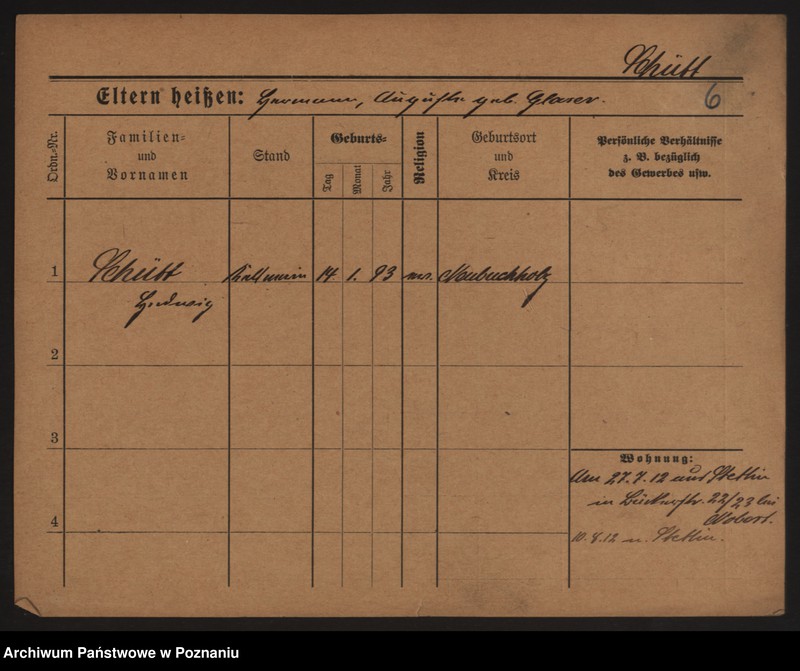 Schütt
Eltern heißen: Hermann, Auguste geb. Glaser.
6
Ordn.=Nr.
Familien=
und
Vornamen
Stand
Geburts=
Tag
Monat
Jahr
Religion
Geburtsort
und
Kreis
Persönliche Verhältnisse
z. B. bezüglich
des Gewerbes usw.
1 Schütt 14. 1. 93 Neubuchholz
Hedwig
2
3
Wohnung:
Am 27.7.12 Stettin
in 22/23 bei
4
10.8.12 n. Stettin.
Archiwum Państwowe w Poznaniu